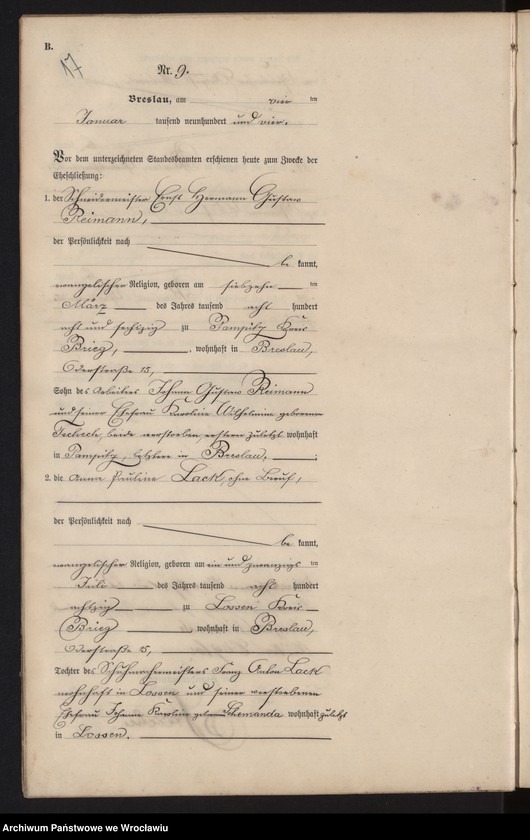 B.
17
Nr. 9.
Breslau, am vier ten
Januar tausend neunhundert und vier.
Vor dem unterzeichneten Standesbeamten erschienen heute zum Zwecke der
Eheschließung:
1. der Schneidermeister Ernst Hermann Gustav
Reimann,
der Persönlichkeit nach
be kannt,
evangelischer Religion, geboren am siebzehn ten
März des Jahres tausend acht hundert
acht und sechszig zu Pampitz Kreis
Brieg, wohnhaft in Breslau,
Oderstraße 15,
Sohn des Arbeiters Johann Gustav Reimann
und seiner Ehefrau Karoline Wilhelmine geborenen
beide verstorben, ersterer zuletzt wohnhaft
in Pampitz, letztere in Breslau;
2. die Anna Pauline Lack, ohne Beruf,
der Persönlichkeit nach
be kannt,
evangelischer Religion, geboren am ein und zwanzigs ten
Juli des Jahres tausend acht hundert
achtzig zu Lossen Kreis
Brieg, wohnhaft in Breslau,
Oderstraße 15,
Tochter des Schuhmachermeisters Franz Anton Lack
wohnhaft in Lossen und seiner verstorbenen
Ehefrau Johanna Karoline geborenen wohnhaft zuletzt
in Lossen.
Archiwum Państwowe we Wrocławiu